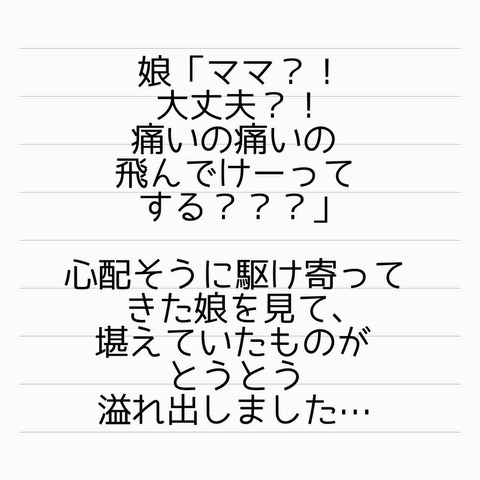 娘「ママ？！
大丈夫？！
痛いの痛いの
飛んでけーって
する？？？」
心配そうに駆け寄って
きた娘を見て、
堪えていたものが
とうとう
溢れ出しました…